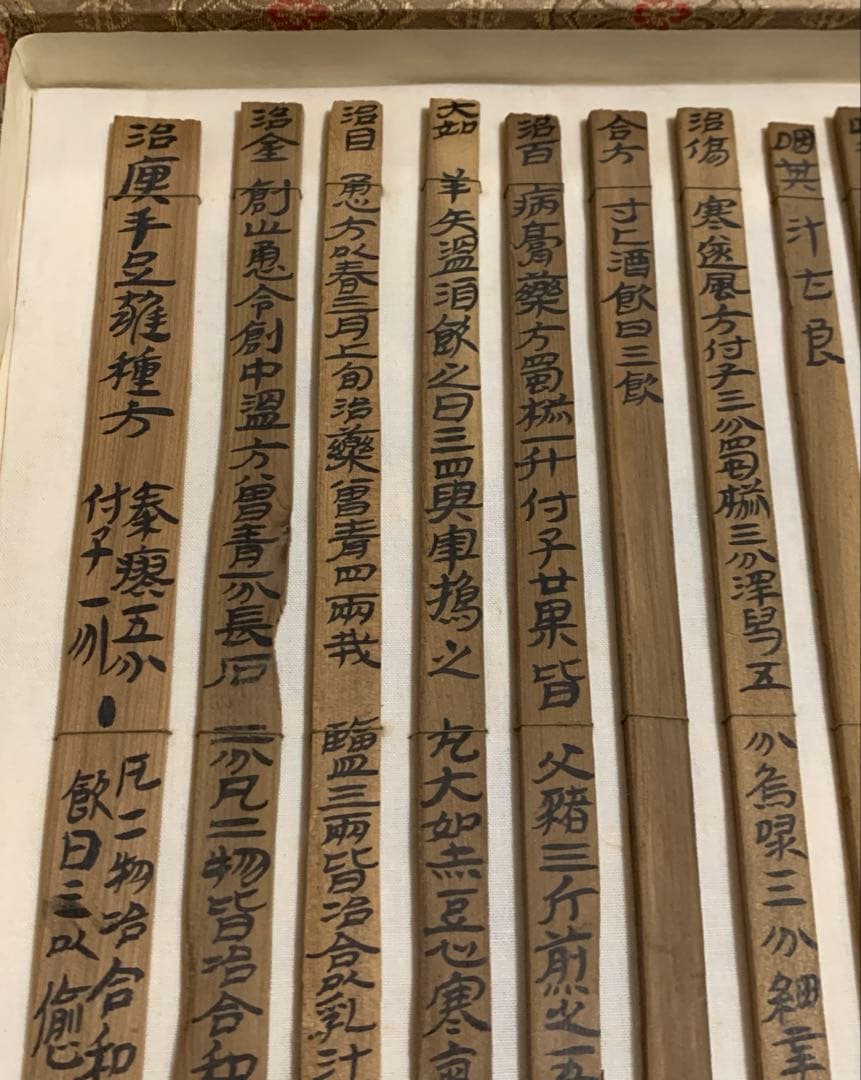 咽其汁七良
治傷寒逐風方付子三分蜀椒三分澤舄五分烏喙三分細辛
合方寸匕酒飲日三飲
治百病膏藥方蜀椒一升付子廿果皆父豬三斤煎之五
大如羊矢溫洎飲之日三四與宰搗之丸大如赤豆心寒氣
治目恿方以春三月上旬治藥曾青四兩戎鹽三兩皆冶合以乳汁
治金創止恿令創中溫方曾青一分長石二分凡二物皆冶合和
治㾓手足雍種方
秦瘳五分
付子一分
凡二物冶合和
飲日三以愉